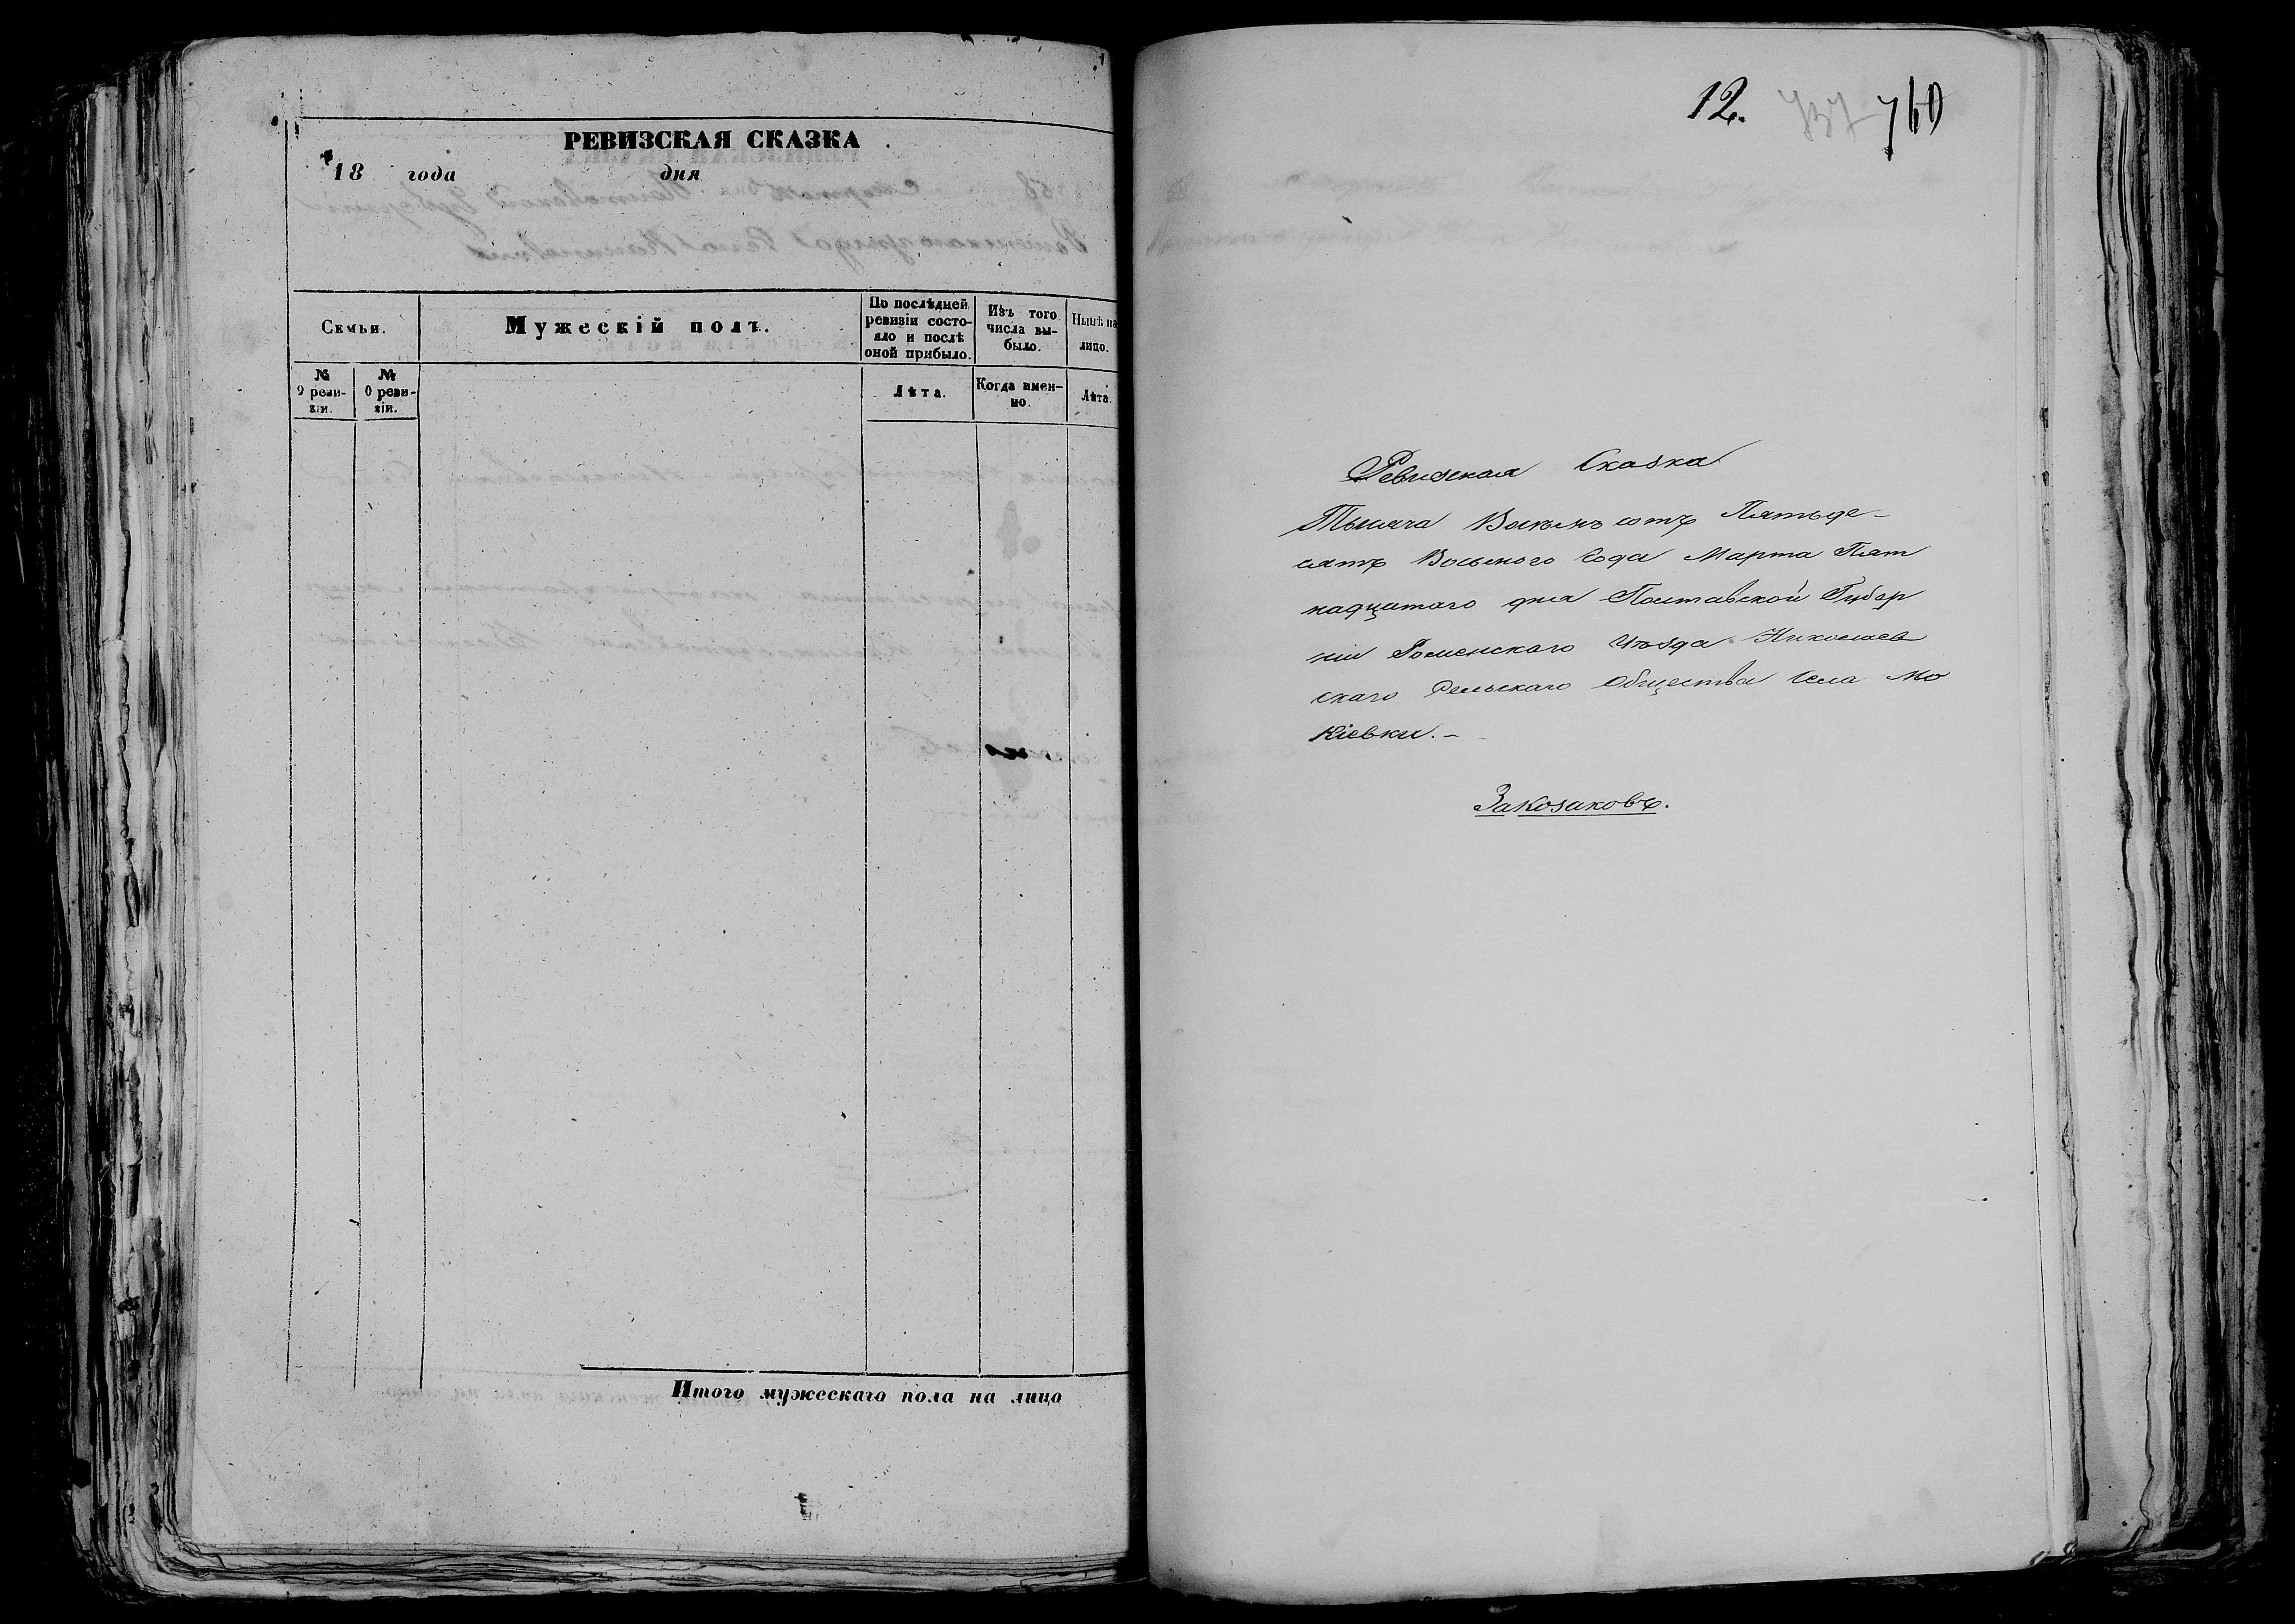 РЕВИЗСКАЯ СКАЗКА
18 года дня
Семьи.
Мужескій полъ.
По послѣдней ревизіи состояло и послѣ оной прибыло.
Изъ того числа выбыло.
Нынѣ на лицо.
№ 9 ревизіи.
№ 0 ревизіи.
Лѣта.
Когда именно.
Лѣта.
Итого мужескаго пола на лицо
12. 737 760
Ревизская Сказка
Тысяча Восемь сотъ Пятьде-
сятъ Восьмого Года Марта Пят
надцатого дня Полтавской Губер
ніи Роменскаго Уѣзда Николаев
скаго Сельскаго Общества Села Мо
кіевки.-
За козаковъ.